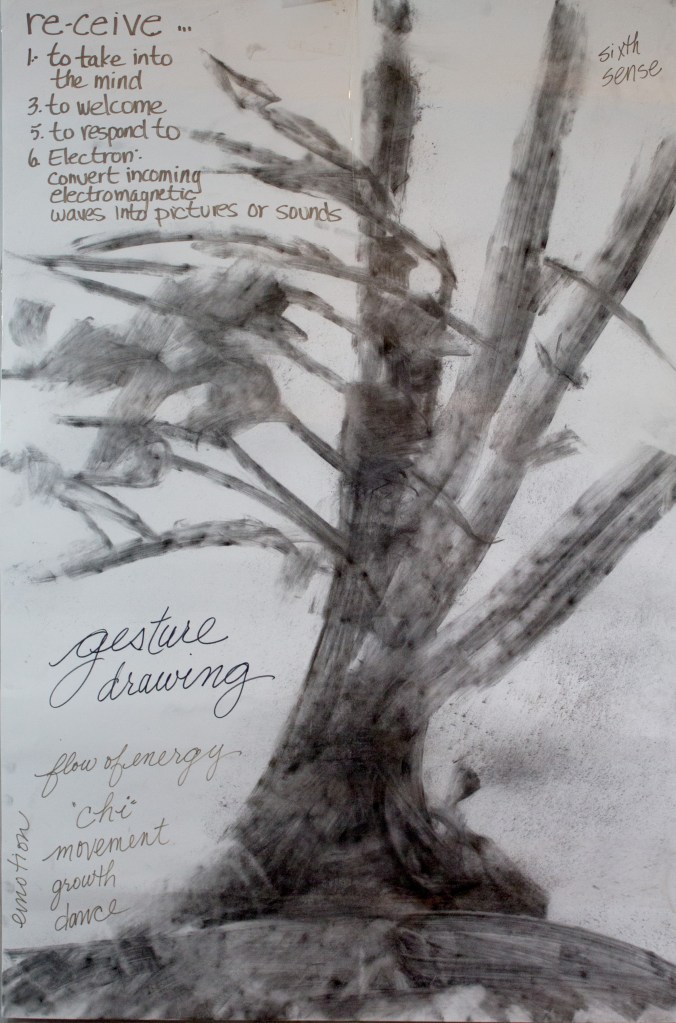 re-ceive ...
1. to take into
the mind
3. to welcome
5. to respond to
6. Electron:
convert incoming
electromagnetic
waves into pictures or sounds
sixth
sense
gesture
drawing
flow of energy
"chi"
movement
growth
dance
emotion